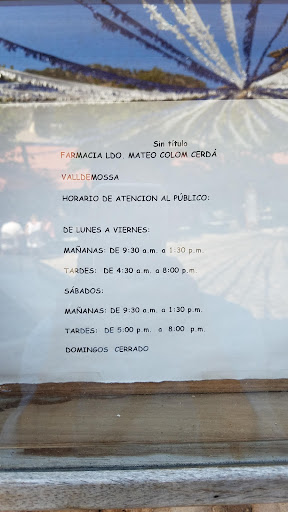 Sin título
FARMACIA LDO. MATEO COLOM CERDÁ
VALLDEMOSSA
HORARIO DE ATENCION AL PÚBLICO:
DE LUNES A VIERNES:
MAÑANAS: DE 9:30 a.m. a 1:30 p.m.
TARDES: DE 4:30 a.m. a 8:00 p.m.
SÁBADOS:
MAÑANAS: DE 9:30 a.m. a 1:30 p.m.
TARDES: DE 5:00 p.m. a 8:00 p.m.
DOMINGOS CERRADO